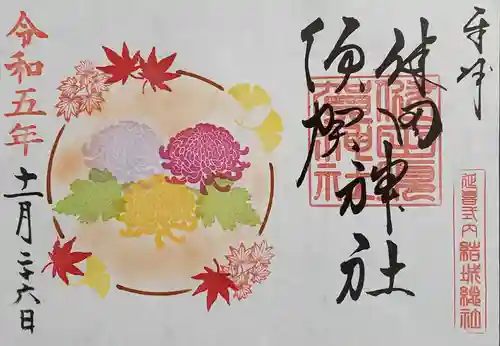 奉拝
健田神社
須賀神社
延喜式内 結城總社
令和五年
十一月二十六日